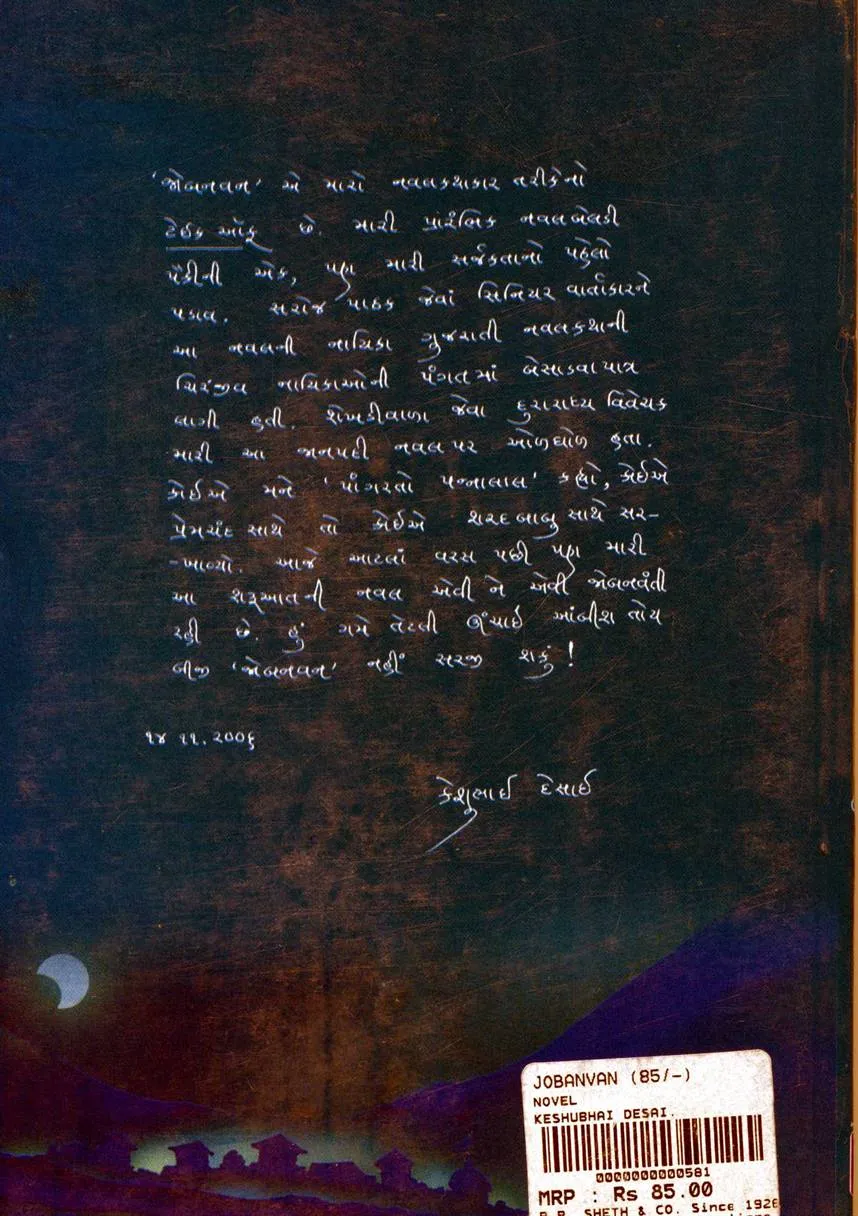 'જોબનવન' એ મારો નવલકથાકાર તરીકેનો
ટેઈક ઑફ છે. મારી પ્રારંભિક નવલબેલડી
પૈકીની એક, પણ મારી સર્જકતાનો પહેલો
પડાવ. સરોજ પાઠક જેવાં સિનિયર વાર્તાકારને
આ નવલની નાયિકા ગુજરાતી નવલકથાની
ચિરંજીવ નાયિકાઓની પંગતમાં બેસાડવાપાત્ર
લાગી હતી. શેખડીવાળા જેવા દુરારાધ્ય વિવેચક
મારી આ જાનપદી નવલ પર ઓળઘોળ હતા.
કોઈએ મને 'પાંગરતો પન્નાલાલ' કહ્યો, કોઈએ
પ્રેમચંદ સાથે તો કોઈએ શરદબાબુ સાથે સર-
-ખાવ્યો. આજે આટલાં વરસ પછી પણ મારી
આ શરૂઆતની નવલ એવી ને એવી જોબનવંતી
રહી છે. હું ગમે તેટલી ઊંચાઈ આંબીશ તોય
બીજી 'જોબનવન' નહીં સરજી શકું !
૧૪ ૧૧. ૨૦૦૬
કેશુભાઈ દેસાઈ
JOBANVAN (85/-)
NOVEL
KESHUBHAI DESAI.
0000000000581
MRP : Rs 85.00
R.R. SHETH & CO. Since 1926